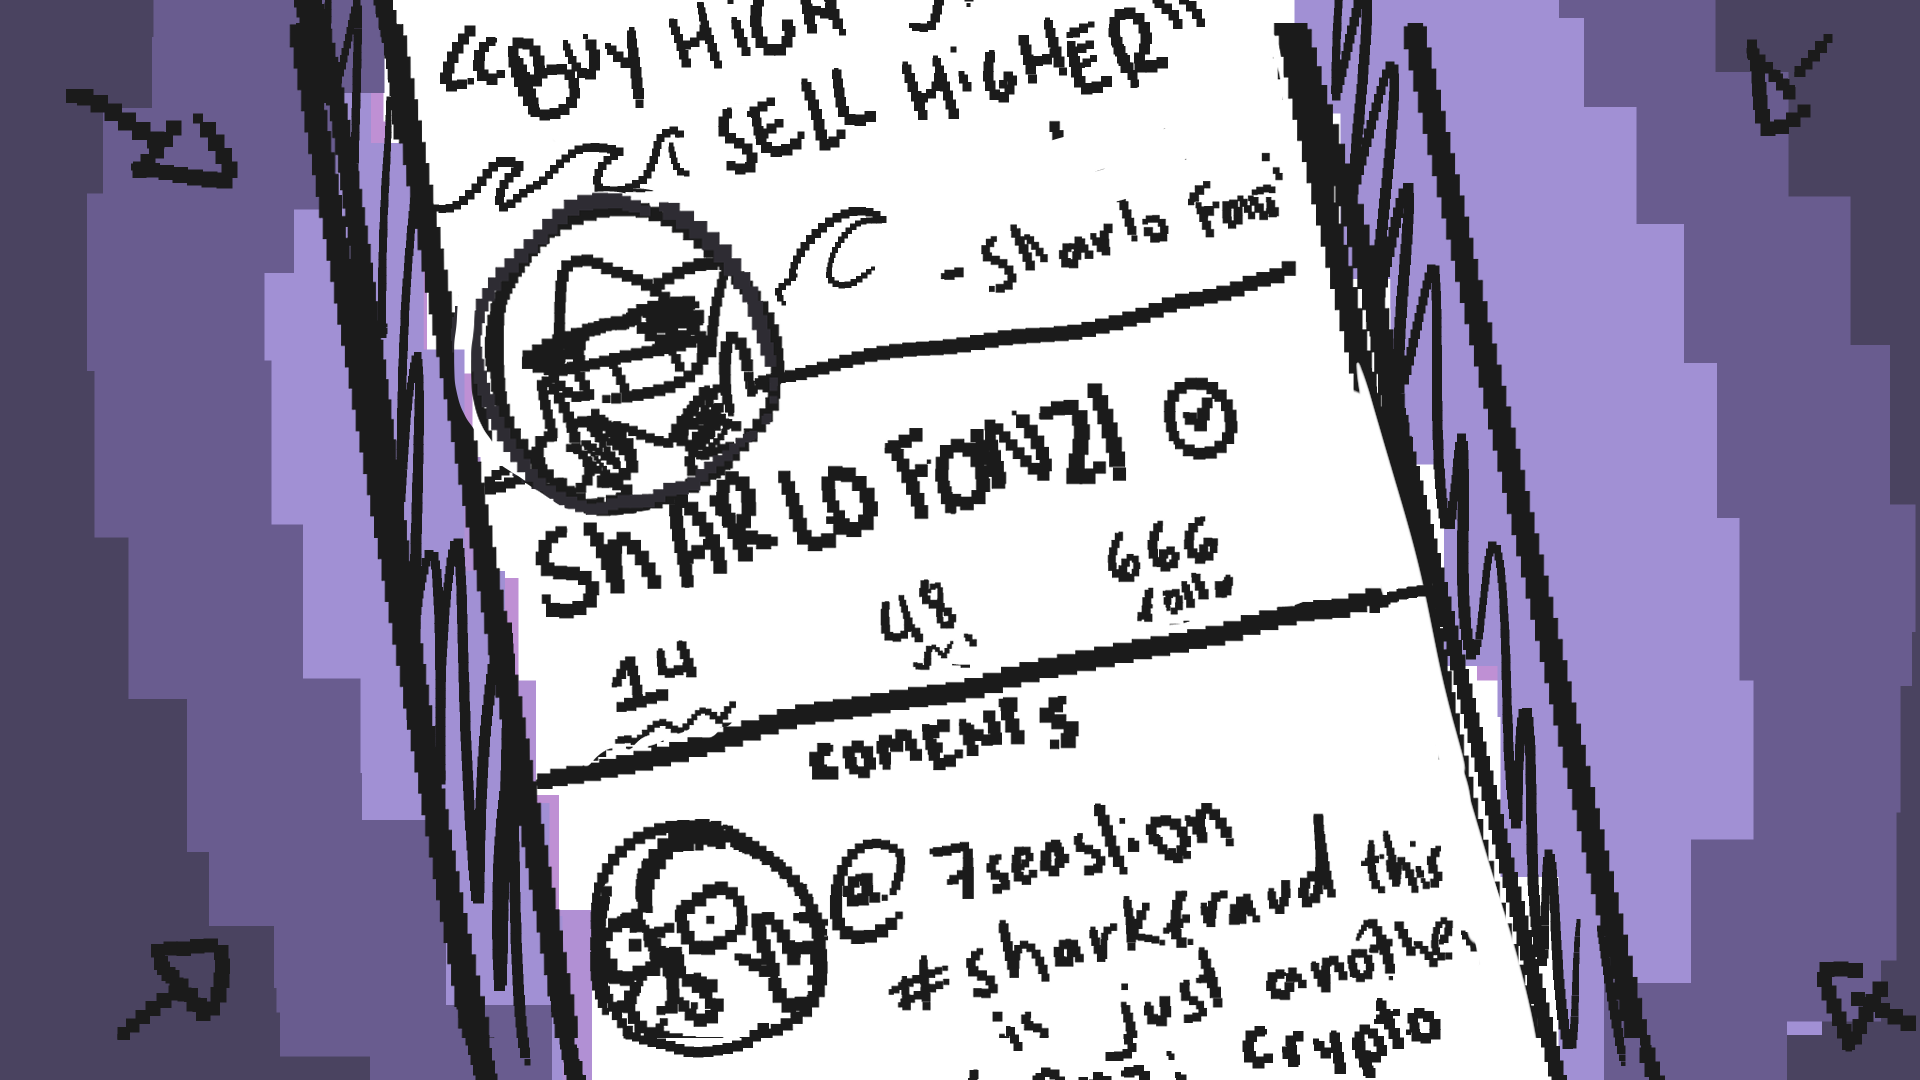 "BUY HIGH
SELL HIGHER"
- Sharlo Fonzi
SHARLO FONZI
14
48
666
COMENTS
@7seaslion
#sharkfraud this
is just another
crypto